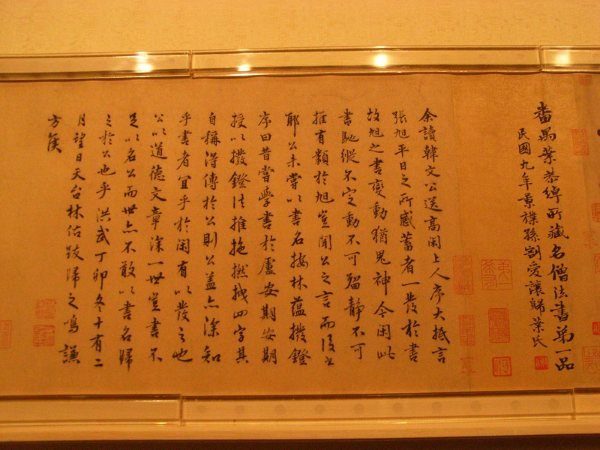 番禺葉恭綽所藏名僧法書第一品
民國九年景樸孫割愛讓歸葉氏
余讀韓文公送高閑上人序大抵言
張旭平日之所感蓄者一發於書
故旭之書變動猶鬼神今閑此
書馳縱不定動不可留靜不可
摧有類於旭豈聞公之言而後
耶公未嘗以書名按林蘊撥鐙
序曰昔嘗學書於盧安期安期
授以撥鐙法推拖撚拽四字其
自稱得傳於公則公蓋亦深知
乎書者宜乎於閑有以發之也
公以道德文章深一世豈書不
足以名公而世亦不敢以書名歸
之於公也乎洪武丁卯冬十有二
月望日天台林佑跋歸之
方侯